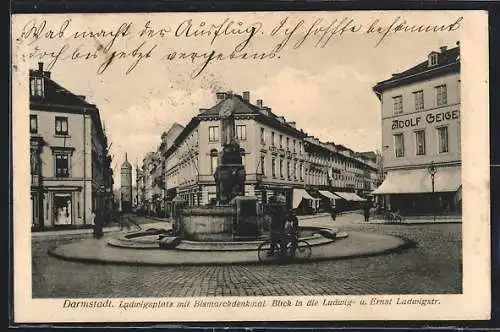 Was macht der Ausflug. Ich hoffe bekommt
doch bei jetzt vergeben.
ADOLF GEIGE
Darmstadt. Ludwigsplatz mit Bismarckdenkmal. Blick in die Ludwig- u. Ernst Ludwigstr.